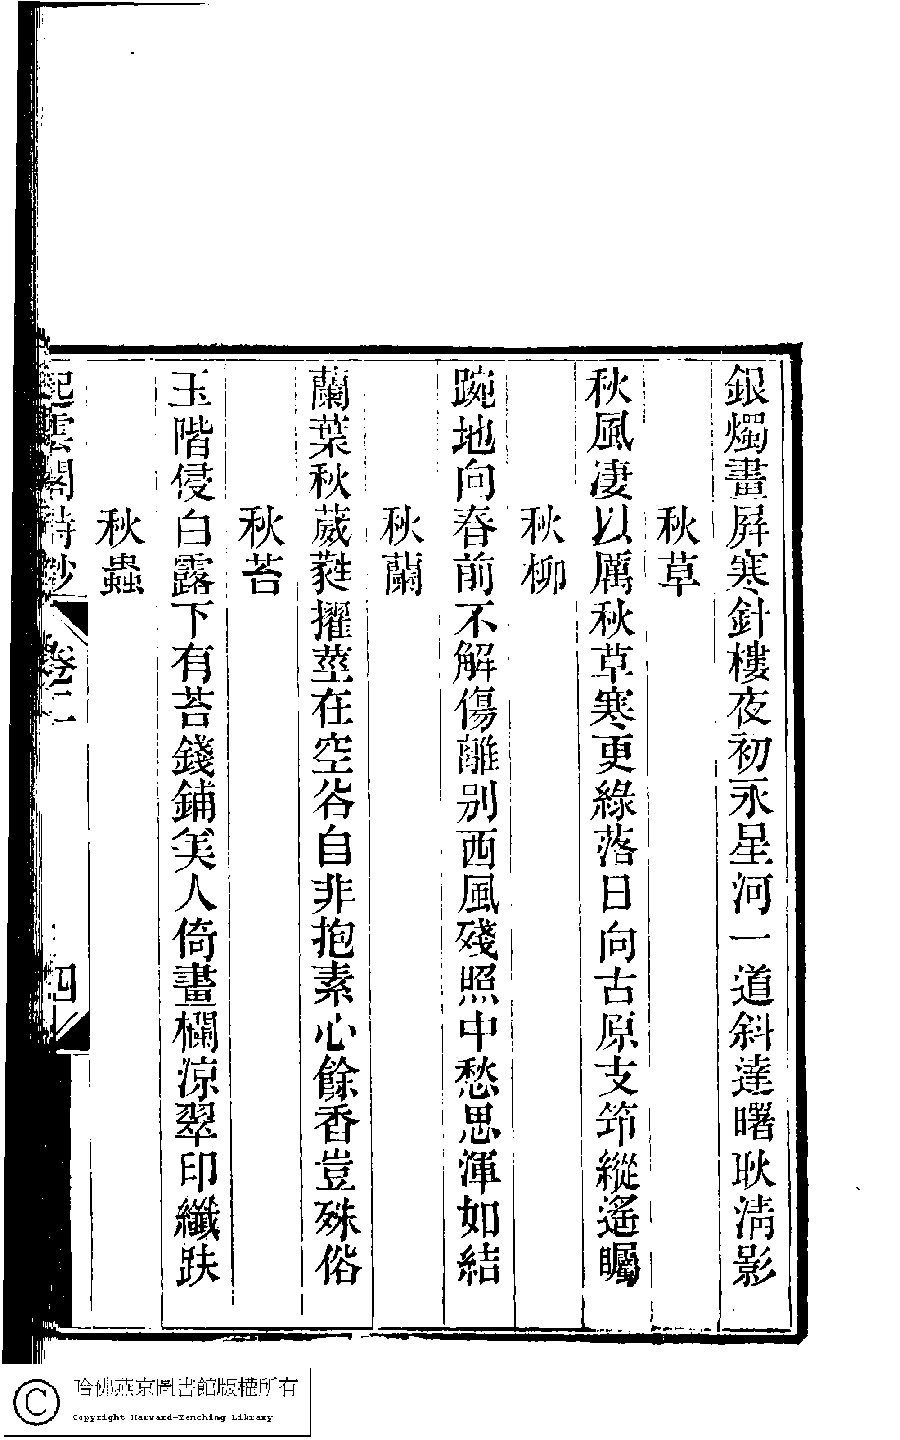 銀燭畫屏寒針樓夜初永星河一道斜達曙耿淸影
秋草
秋風凄以厲秋草寒更綠落日向古原支筇縱遙矚
秋柳
踠地向春前不解傷離別西風殘照中愁思渾如結
秋蘭
蘭葉秋葳蕤擢莖在空谷自非抱素心餘香豈殊俗
秋苔
玉階侵白露下有苔錢鋪美人倚畫欄涼翠印纖趺
秋蟲
起雲閣詩鈔
卷二
四
哈佛燕京圖書館版權所有
Copyright Harvard-Yenching Library